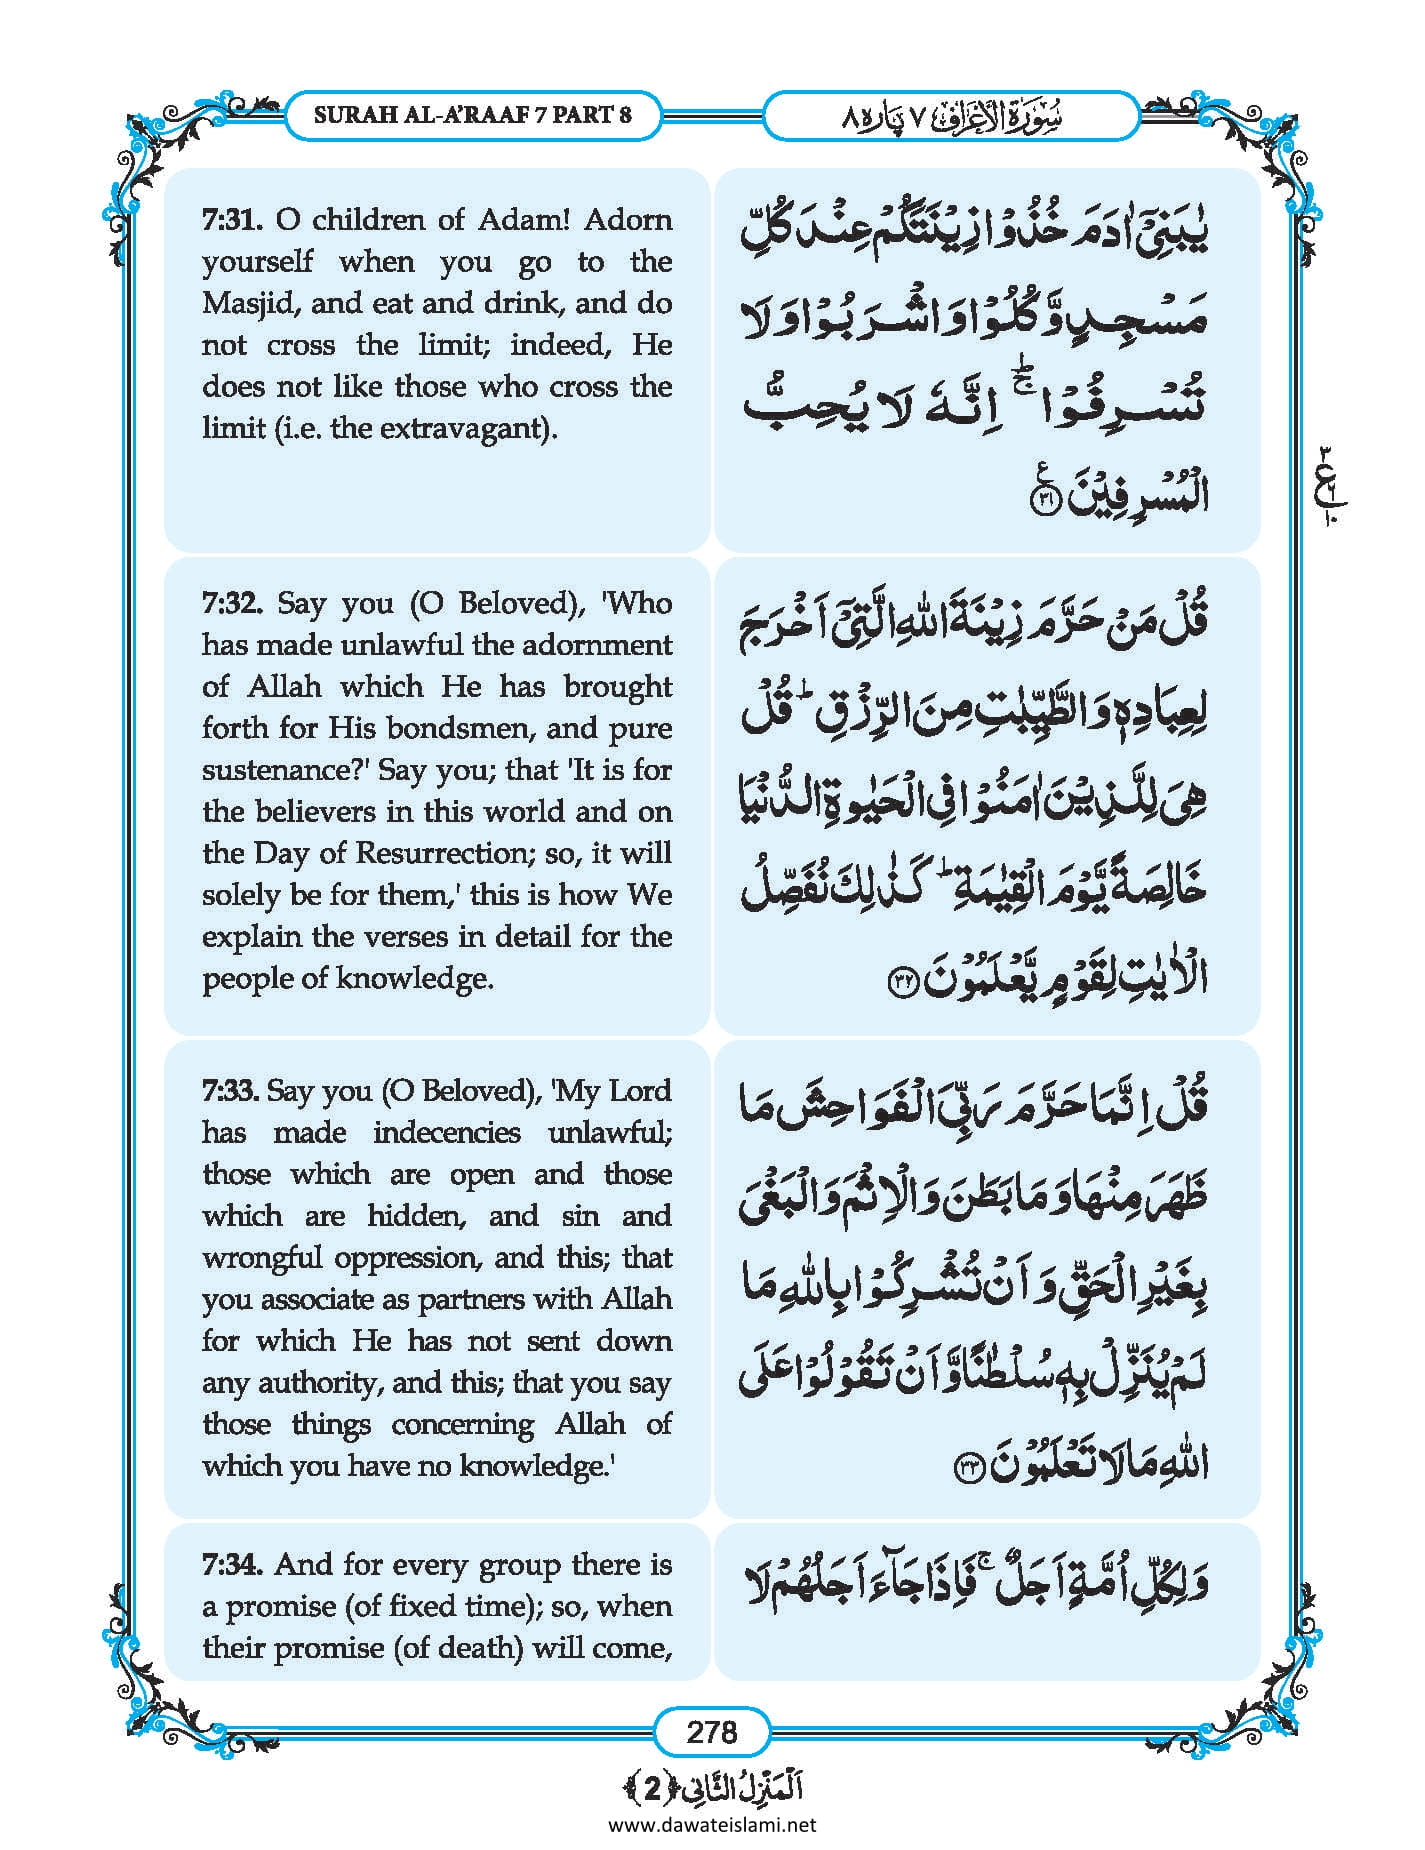 SURAH AL-A'RAAF 7 PART 8
سُوۡرَةُ الۡاَعۡرَاف ۷ پارہ ۸
7:31. O children of Adam! Adorn
yourself when you go to the
Masjid, and eat and drink, and do
not cross the limit; indeed, He
does not like those who cross the
limit (i.e. the extravagant).
یٰبَنِیۡۤ اٰدَمَ خُذُوۡا زِیۡنَتَکُمۡ عِنۡدَ کُلِّ
مَسۡجِدٍ وَّ کُلُوۡا وَ اشۡرَبُوۡا وَ لَا
تُسۡرِفُوۡا ۚؕ اِنَّہٗ لَا یُحِبُّ
الۡمُسۡرِفِیۡنَ ﴿۳۱﴾ ع
۳
ع
۱۰
7:32. Say you (O Beloved), 'Who
has made unlawful the adornment
of Allah which He has brought
forth for His bondsmen, and pure
sustenance?' Say you; that 'It is for
the believers in this world and on
the Day of Resurrection; so, it will
solely be for them,' this is how We
explain the verses in detail for the
people of knowledge.
قُلۡ مَنۡ حَرَّمَ زِیۡنَۃَ اللّٰہِ الَّتِیۡۤ اَخۡرَجَ
لِعِبَادِہٖ وَ الطَّیِّبٰتِ مِنَ الرِّزۡقِ ؕ قُلۡ
ہِیَ لِلَّذِیۡنَ اٰمَنُوۡا فِی الۡحَیٰوۃِ الدُّنۡیَا
خَالِصَۃً یَّوۡمَ الۡقِیٰمَۃِ ؕ کَذٰلِکَ نُفَصِّلُ
الۡاٰیٰتِ لِقَوۡمٍ یَّعۡلَمُوۡنَ ﴿۳۲﴾
7:33. Say you (O Beloved), 'My Lord
has made indecencies unlawful;
those which are open and those
which are hidden, and sin and
wrongful oppression, and this; that
you associate as partners with Allah
for which He has not sent down
any authority, and this; that you say
those things concerning Allah of
which you have no knowledge.'
قُلۡ اِنَّمَا حَرَّمَ رَبِّیَ الۡفَوَاحِشَ مَا
ظَہَرَ مِنۡہَا وَ مَا بَطَنَ وَ الۡاِثۡمَ وَ الۡبَغۡیَ
بِغَیۡرِ الۡحَقِّ وَ اَنۡ تُشۡرِکُوۡا بِاللّٰہِ مَا
لَمۡ یُنَزِّلۡ بِہٖ سُلۡطٰنًا وَّ اَنۡ تَقُوۡلُوۡا عَلَی
اللّٰہِ مَا لَا تَعۡلَمُوۡنَ ﴿۳۳﴾
7:34. And for every group there is
a promise (of fixed time); so, when
their promise (of death) will come,
وَ لِکُلِّ اُمَّۃٍ اَجَلٌ ۚ فَاِذَا جَآءَ اَجَلُہُمۡ لَا
278
اَلۡمَنۡزِلُ الثَّانِی ﴿2﴾
www.dawateislami.net